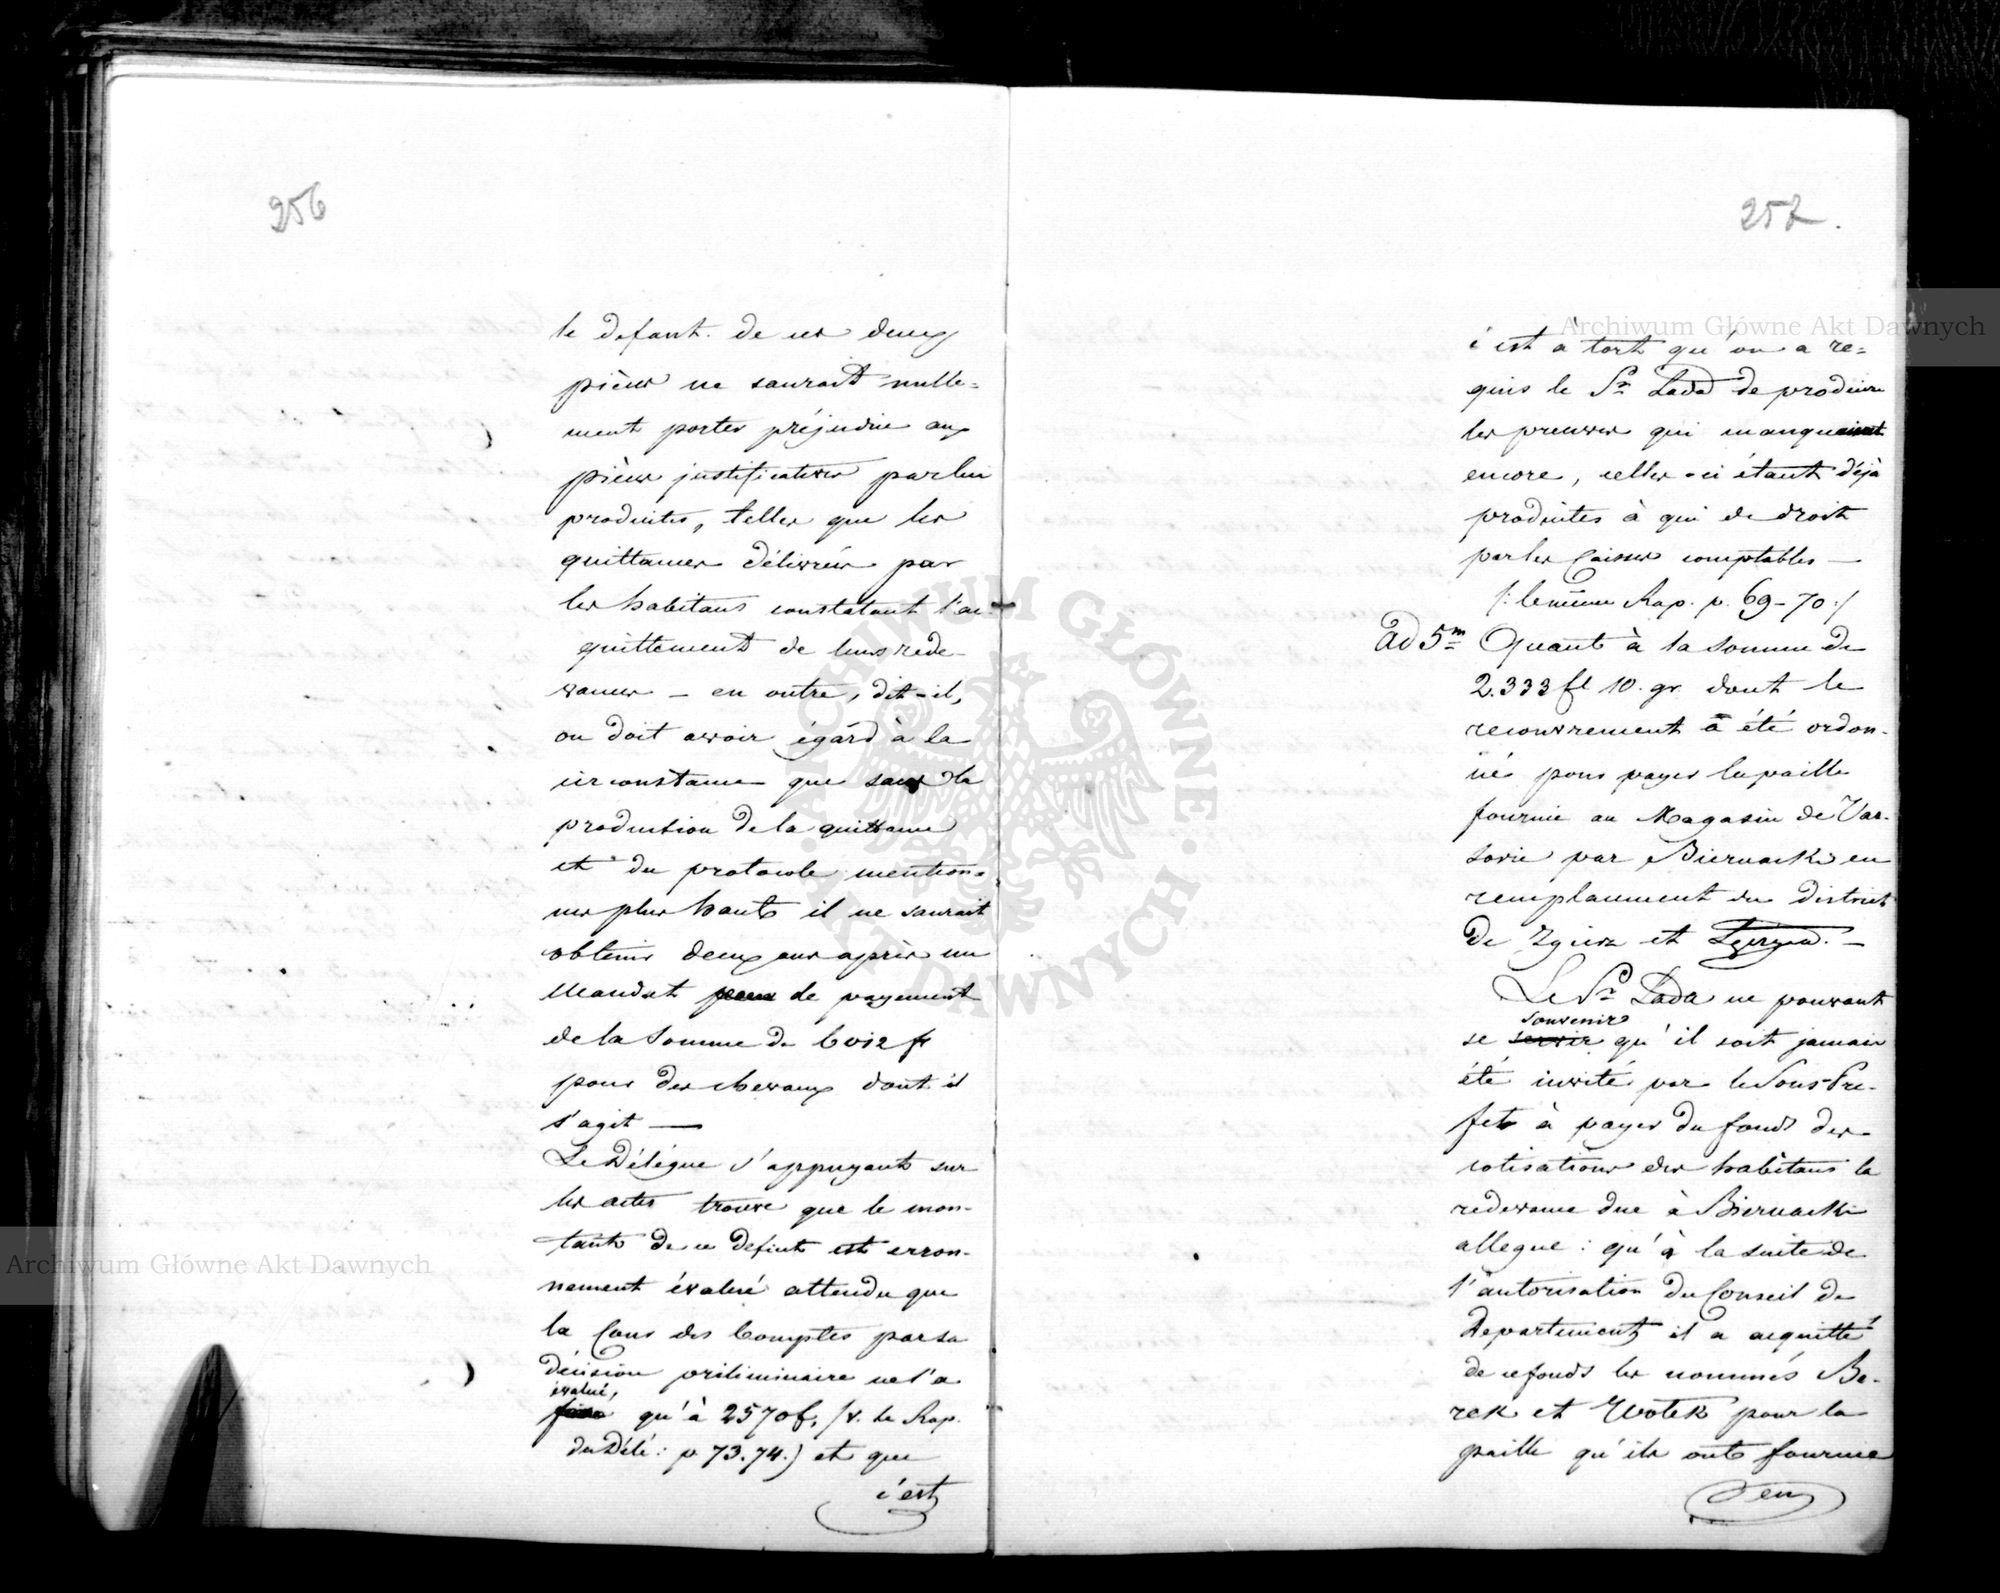 256
le defaut de ces deux
pièces ne saurait nulle=
ment porter préjudice aux
pièces justificatives par lui
produites, telles que les
quittances délivrées par
les habitans constatant l'ac
quittement de leurs rede-
vances – en outre, dit-il,
on doit avoir égard à la
circonstance que sans la
production de la quittance
et du protocole mention-
nés plus hauts il ne saurait
obtenir deux ans après un
Mandat de payement
de la Somme de 6012 f
pour des chevaux dont il
s'agit —
Le Délégue s'appuyant sur
les actes trouve que le mon-
tant de ce deficit est erron-
nement évalué attendu que
la Cour des Comptes par sa
décision préliminaire ne l'a
évalué,
qu'à 2570 f. /v. le Rap.
du Délé: p 73.74.) et que
c'est
257.
c'est à tort qu'on a re=
quis le Sr Lada de produire
les preuves qui manquaient
encore, celles-ci étant déjà
produites à qui de droit
par les Caisses comptables —
/: le même Rap. p. 69-70:/
ad 5m Quant à la Somme de
2.333 fl 10. gr. dont le
recouvrement a été ordon-
né pour payer la paille
fournie au Magasin de Var-
sovie par Biernacki en
remplacement du district
de Zgierz et —
Le Sr Lada ne pouvant
souvenir
se servir qu'il soit jamais
été invité par le Sous-Pre-
fet à payer du fond des
cotisations des habitans la
redevance due à Biernacki
allegue: qu'à la suite de
l'autorisation du Conseil de
Departement il a acquitté
de ce fonds les nommés Be-
rek et Wolek pour la
paille qu'ils ont fournie
en
Archiwum Główne Akt Dawnych
Archiwum Główne Akt Dawnych
ARCHIWUM GŁÓWNE AKT DAWNYCH